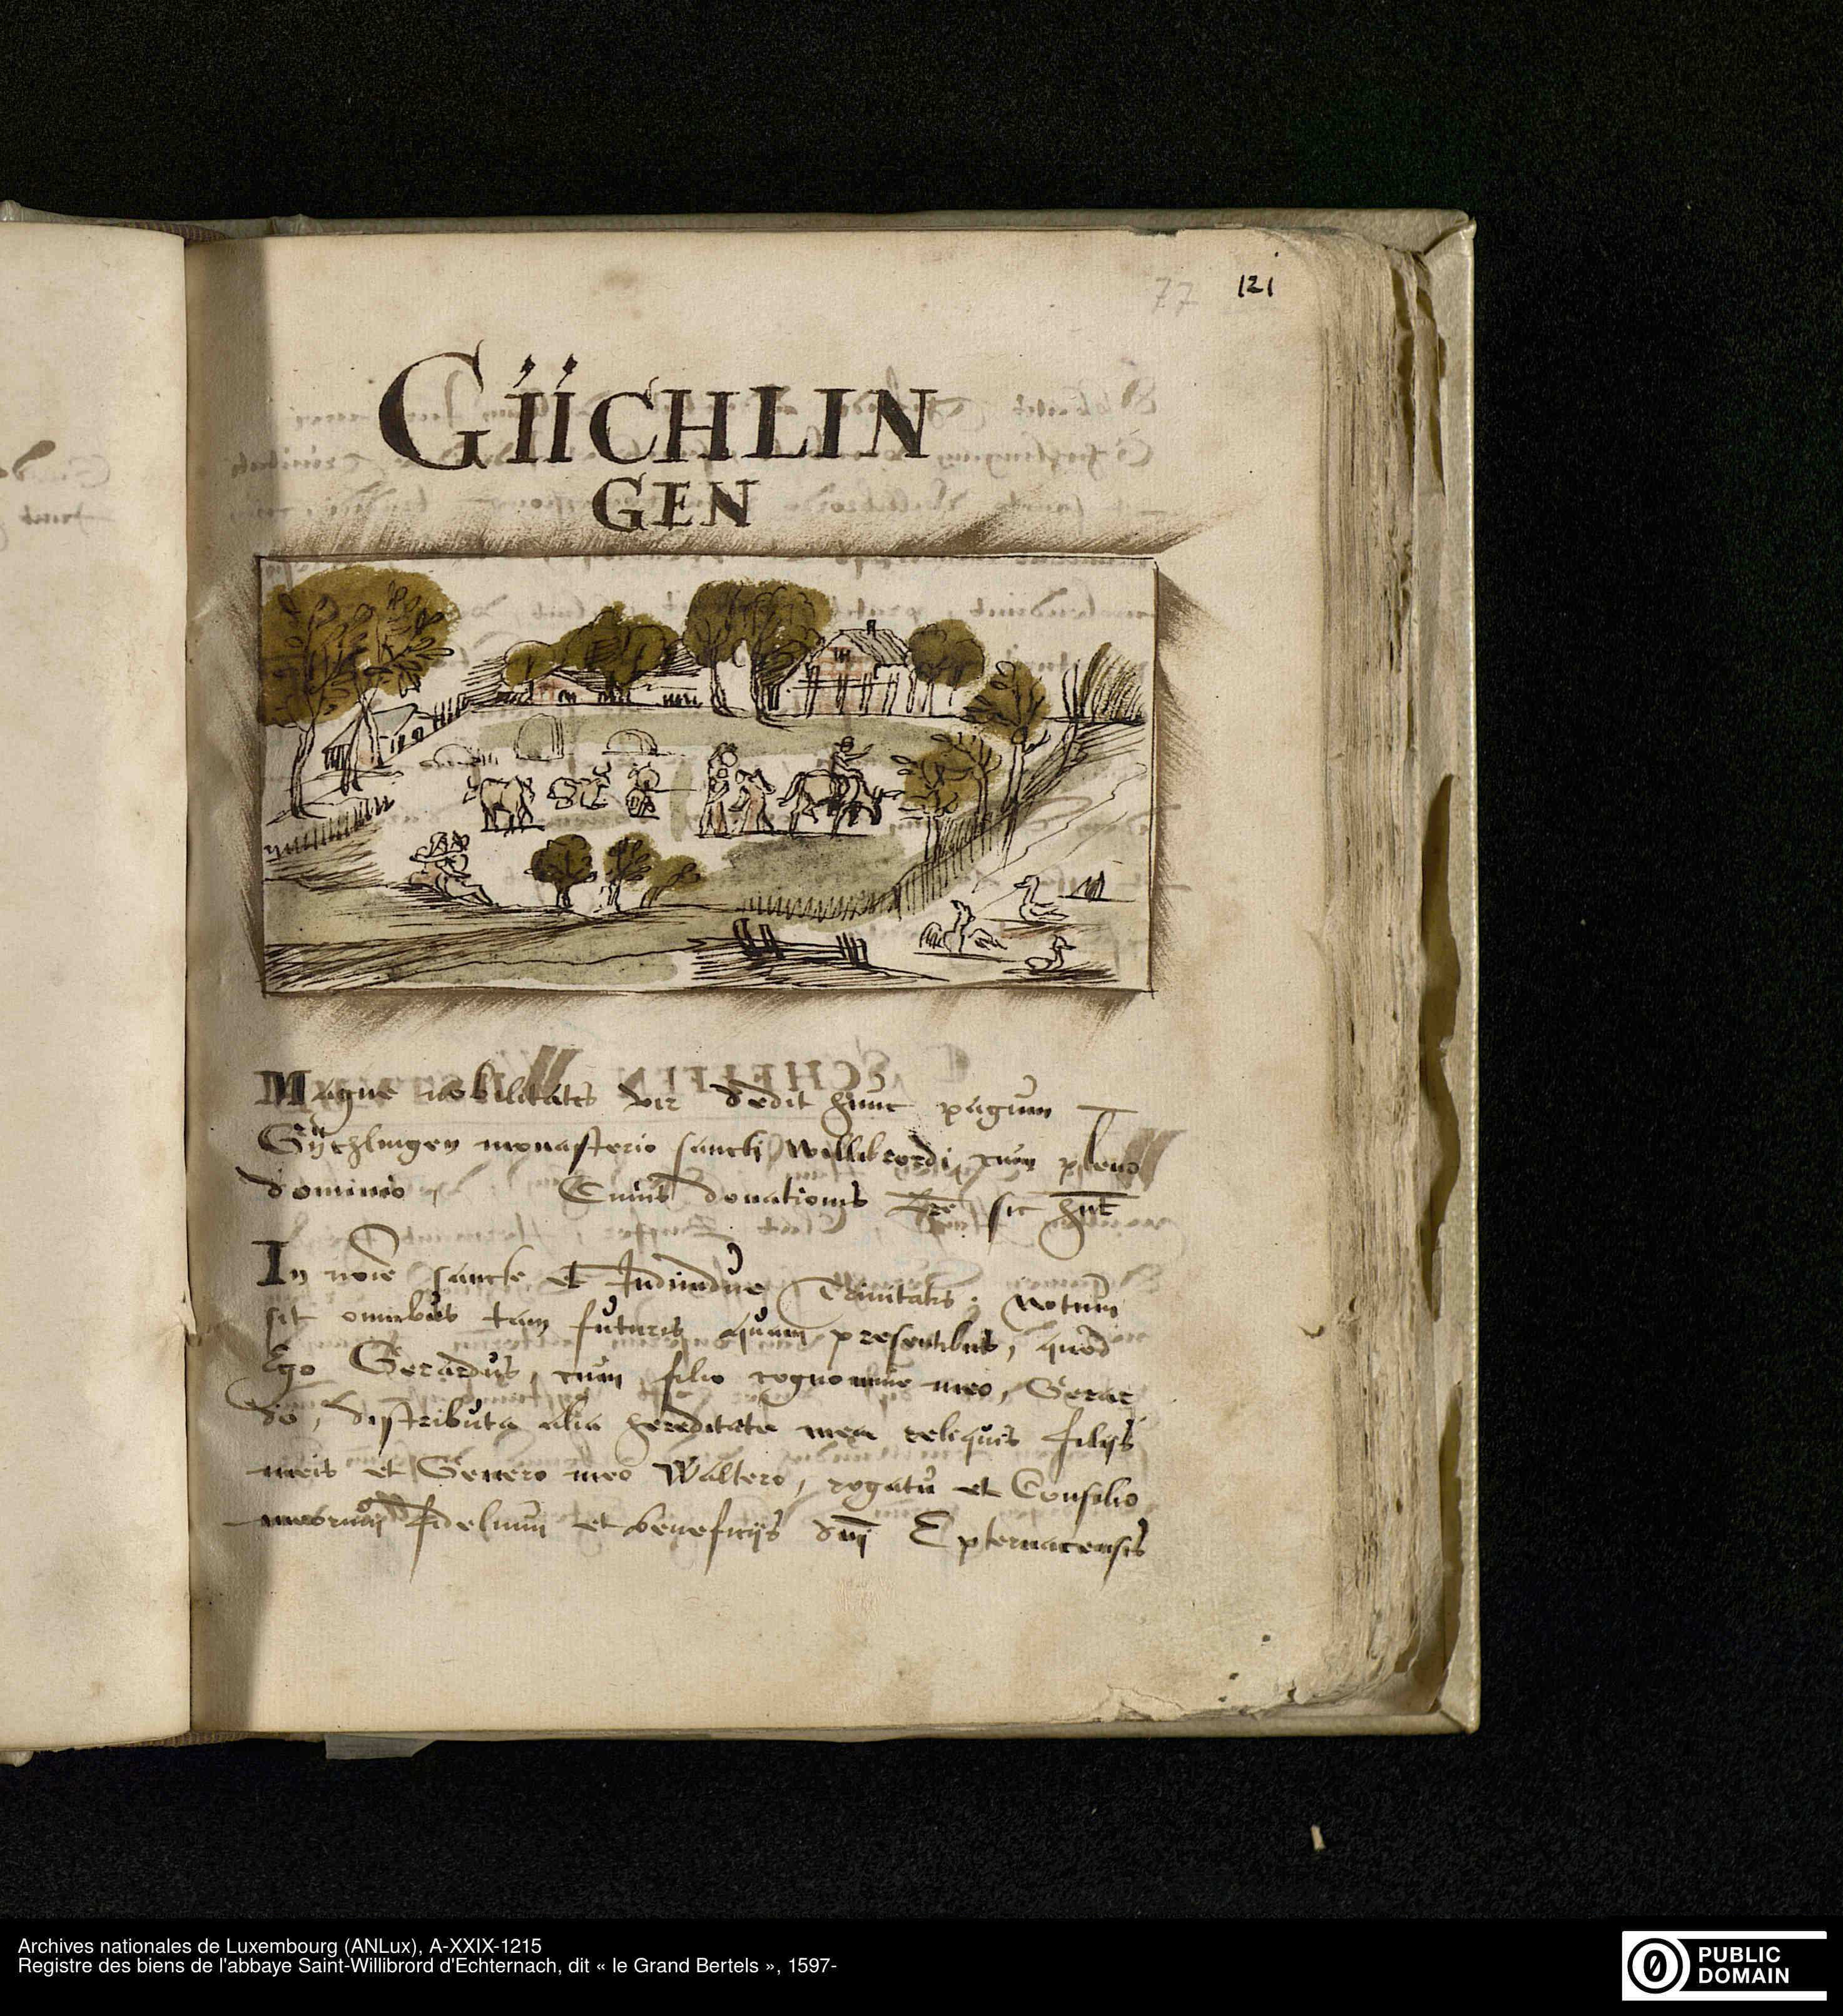 77 121
GIICHLIN
GEN
Magne nobilitatis vir dedit hunc pagum
Gÿchlingen monasterio sancti Willibrordi, cum pleno
dominio, Cuius donationis lrē sic hn̄t
In noīe sancte et Indiuidue Trinitatis; Notum
sit omnibus tam futuris quam presentibus, quod
Ego Gerardus, cum filio cognomine meo, Gerar
do, distributa alia hereditate mea reliquis filijs
meis et Genero meo Waltero, rogatu et Consilio
meorum fidelium et beneficijs dn̄i Epternacensis
Archives nationales de Luxembourg (ANLux), A-XXIX-1215
Registre des biens de l'abbaye Saint-Willibrord d'Echternach, dit « le Grand Bertels », 1597-
0 PUBLIC
DOMAIN